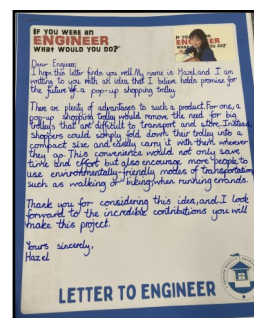 IF YOU WERE AN
ENGINEER
WHAT WOULD YOU DO?
Dear Engineer,
I hope this letter finds you well. My name is Hazel, and I am
writing to you with an idea that I believe holds promise for
the future of a pop-up shopping trolley.
There are plenty of advantages to such a product. For one, a
pop-up shopping trolley would remove the need for big
trolleys that are difficult to transport and store. Instead
shoppers could simply fold down their trolley into a
compact size and easily carry it with them wherever
they go. This convenience would not only save
time and effort but also encourage more people to
use environmentally-friendly modes of transportation
such as walking or biking when running errands.
Thank you for considering this idea, and I look
forward to the incredible contributions you will
make this project.
Yours sincerely,
Hazel
LETTER TO ENGINEER